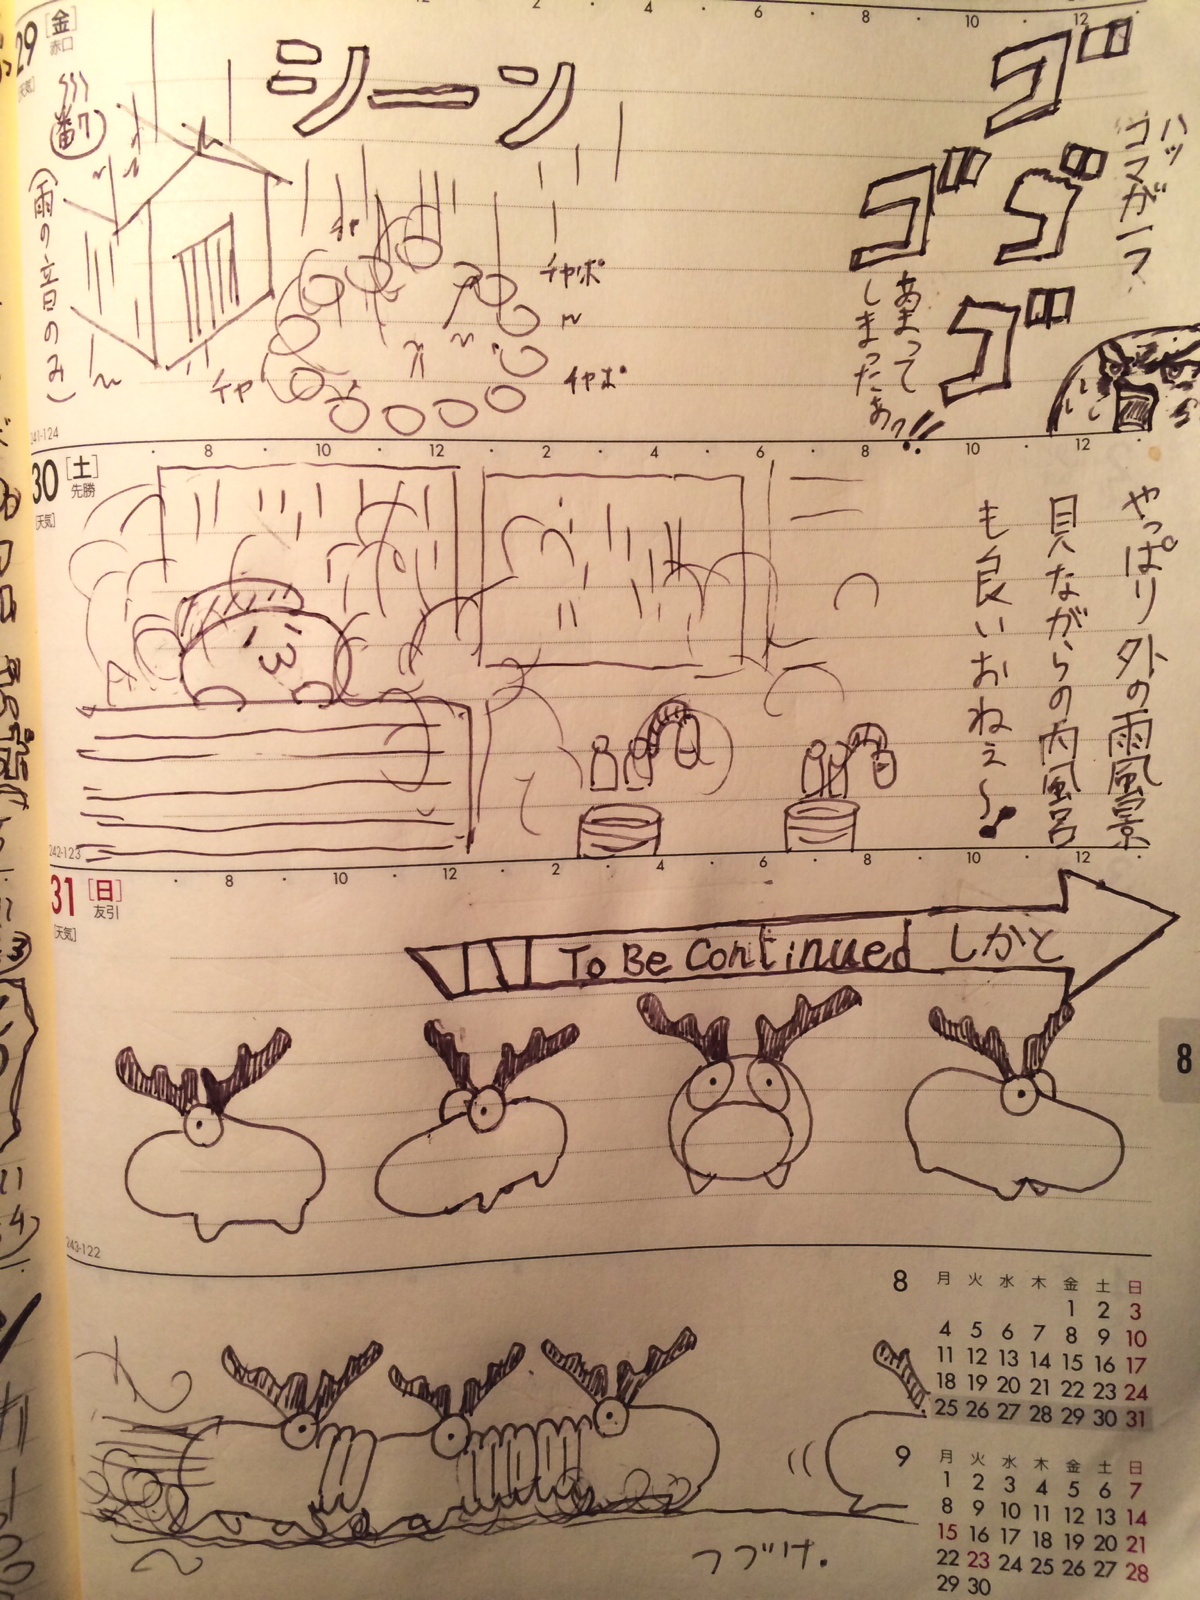 29 [金]
赤口
[天気]
シーン
番外
(雨の音のみ)
チャ
チャポ
チャ
チャポ
ゴゴゴゴ
ハッ
コマが一つ
あまって
しまったあっ!!
241-124
8 10 12 2 4 6 8 10 12
30 [土]
先勝
[天気]
やっぱり外の雨風景
見ながらの内風呂
も良いおねぇ〜♪
242-123
8 10 12 2 4 6 8 10 12
31 [日]
友引
[天気]
To Be Continued しかと
243-122
8
つづけ.
8 月 火 水 木 金 土 日
1 2 3
4 5 6 7 8 9 10
11 12 13 14 15 16 17
18 19 20 21 22 23 24
25 26 27 28 29 30 31
9 月 火 水 木 金 土 日
1 2 3 4 5 6 7
8 9 10 11 12 13 14
15 16 17 18 19 20 21
22 23 24 25 26 27 28
29 30